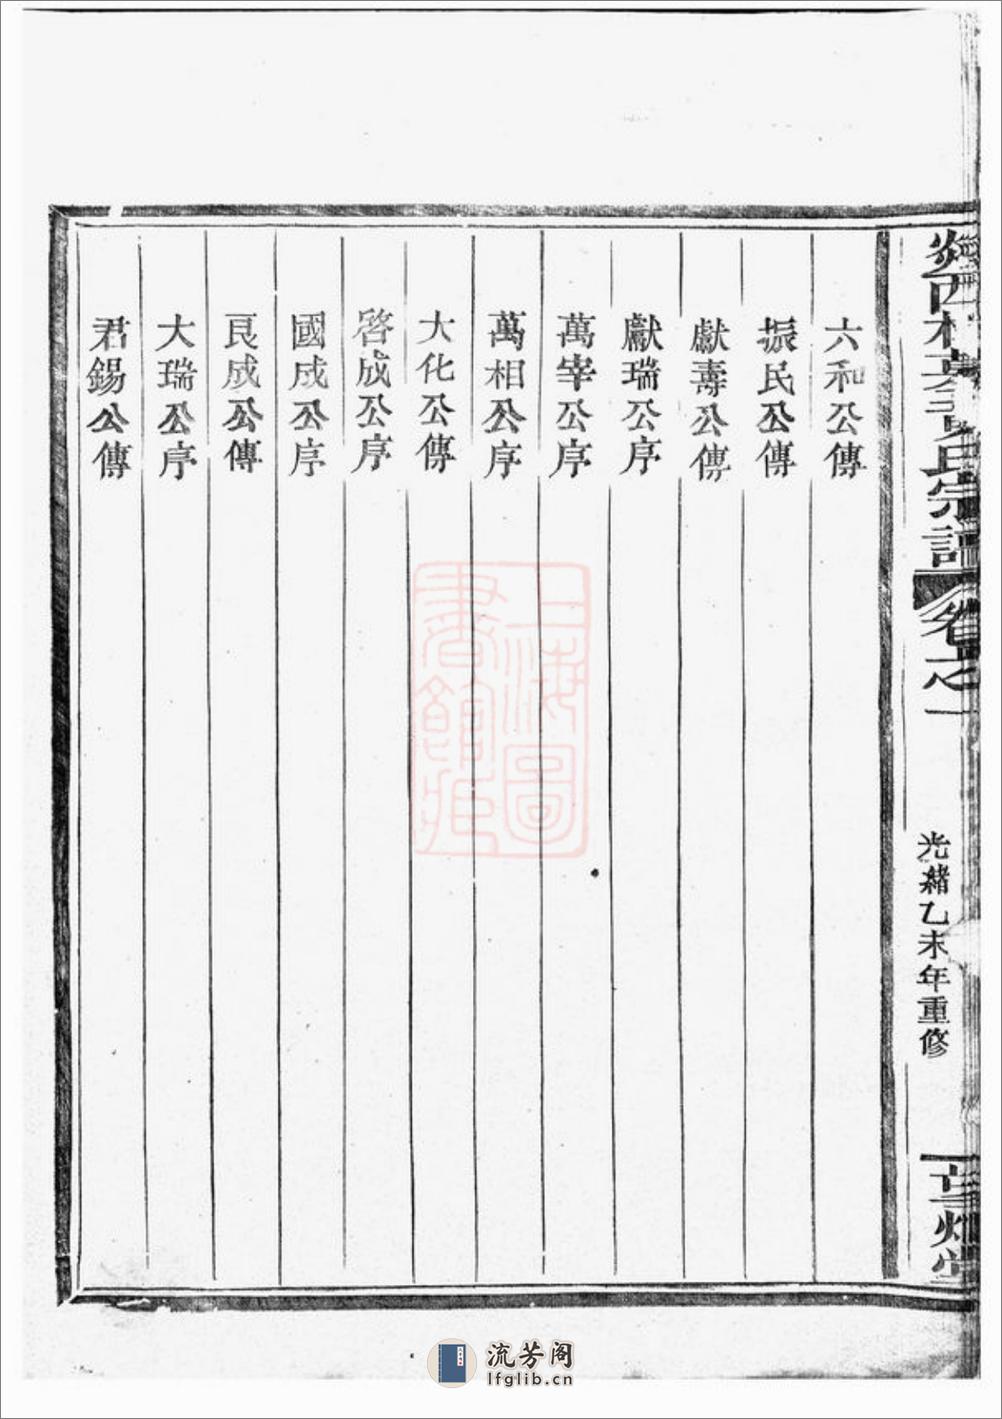 六和公傳
振民公傳
獻壽公傳
獻瑞公序
萬宰公序
萬相公序
大化公傳
啓成公序
國成公序
良成公傳
大瑞公序
君錫公傳
氏宗譜
卷之一
光緒乙未年重修
上海圖
書館藏
流芳阁
lfglib.cn